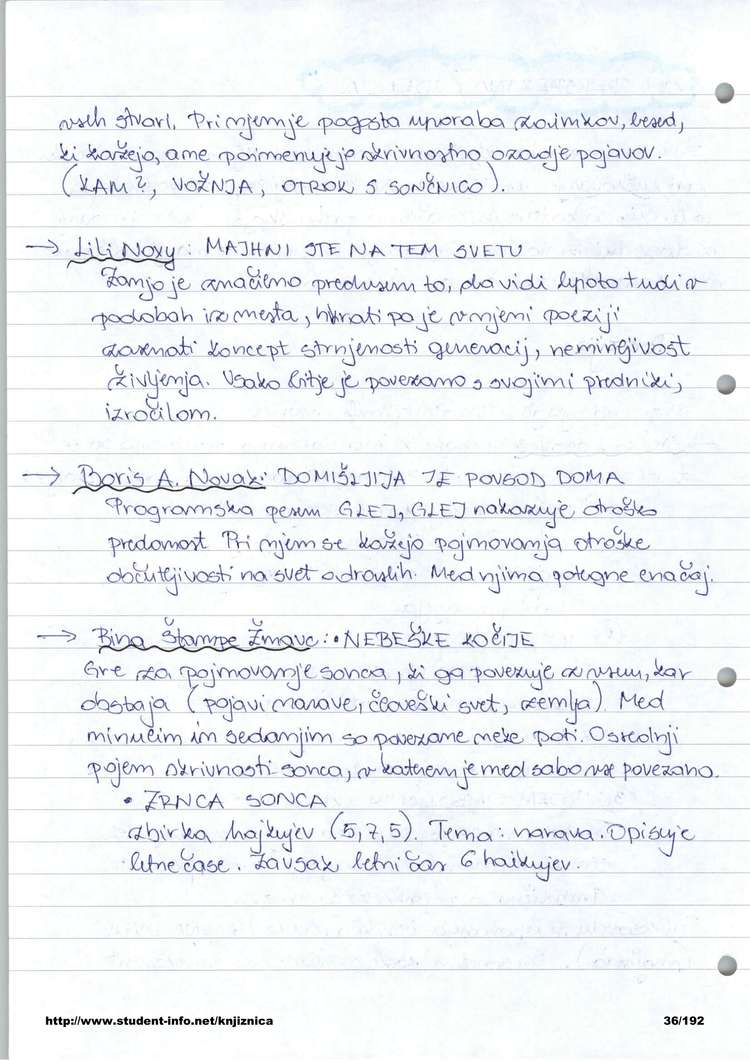 vseh stvari. Pri njem je pogosta uporaba zaimkov, besed,
ki kažejo, a ne poimenujejo skrivnostno ozadje pojavov.
(KAM?, VOŽNJA, OTROK S SONČNICO).
→ Lili Novy: MAJHNI STE NA TEM SVETU
Zanjo je značilno predvsem to, da vidi lepoto tudi v
podobah iz mesta, hkrati pa je v njeni poeziji
zaznati koncept strnjenosti generacij, neminljivost
življenja. Vsako bitje je povezano s svojimi predniki,
izročilom.
→ Boris A. Novak: DOMIŠLJIJA JE POVSOD DOMA
Programska pesem GLEJ, GLEJ nakazuje otroško
predomost Pri njem se kažejo pojmovanja otroške
občutljivosti na svet odraslih. Med njima potegne enačaj.
→ Bina Štampe Žmavc: • NEBEŠKE KOČIJE
Gre za pojmovanje sonca, ki ga povezuje z vsem, kar
obstaja (pojavi narave, človeški svet, zemlja). Med
minučim in sedanjim so povezane neke poti. Osrednji
pojem skrivnosti sonca, v katerem je med sabo vse povezano.
• ZRNCA SONCA
zbirka hajkujev (5,7,5). Tema: narava. Opisuje
letne čase. Za vsak letni čas 6 haikujev.
http://www.student-info.net/knjiznica
36/192